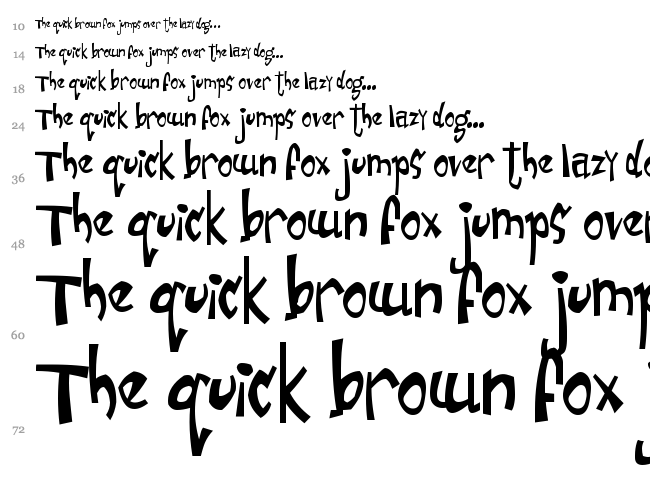 10 The quick brown fox jumps over the lazy dog...
14 The quick brown fox jumps over the lazy dog...
18 The quick brown fox jumps over the lazy dog...
24 The quick brown fox jumps over the lazy dog...
36 The quick brown fox jumps over the lazy do
48 The quick brown fox jumps over
60 The quick brown fox jump
72 The quick brown fox